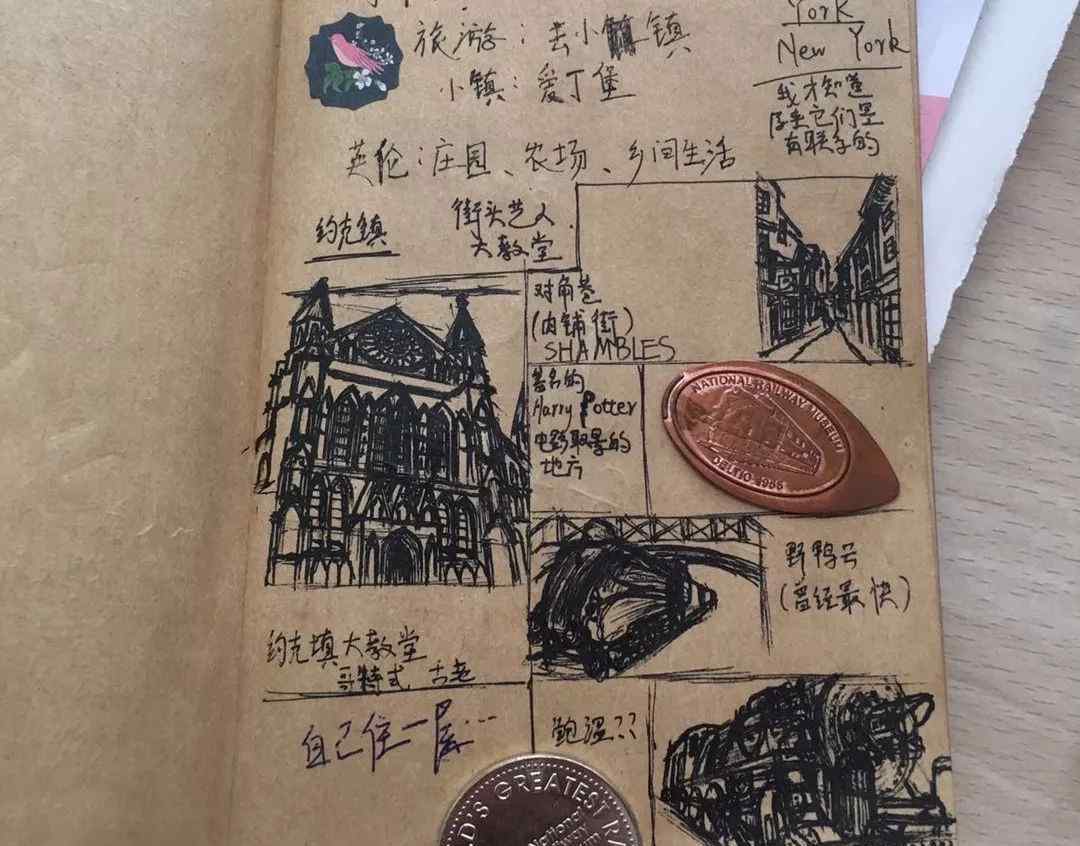 旅游：去小镇
小镇：爱丁堡
York
New York
我才知道
原来它们是
有联系的
英伦：庄园、农场、乡间生活
约克镇
街头艺人
大教堂
对角巷
(肉铺街)
SHAMBLES
著名的
Harry Potter
电影取景的
地方
NATIONAL RAILWAY MUSEUM
DELTIC 1955
野鸭号
(曾经最快)
约克填大教堂
哥特式 古老
自己住一层…
鲍温??
LD'S GREATEST RA
National